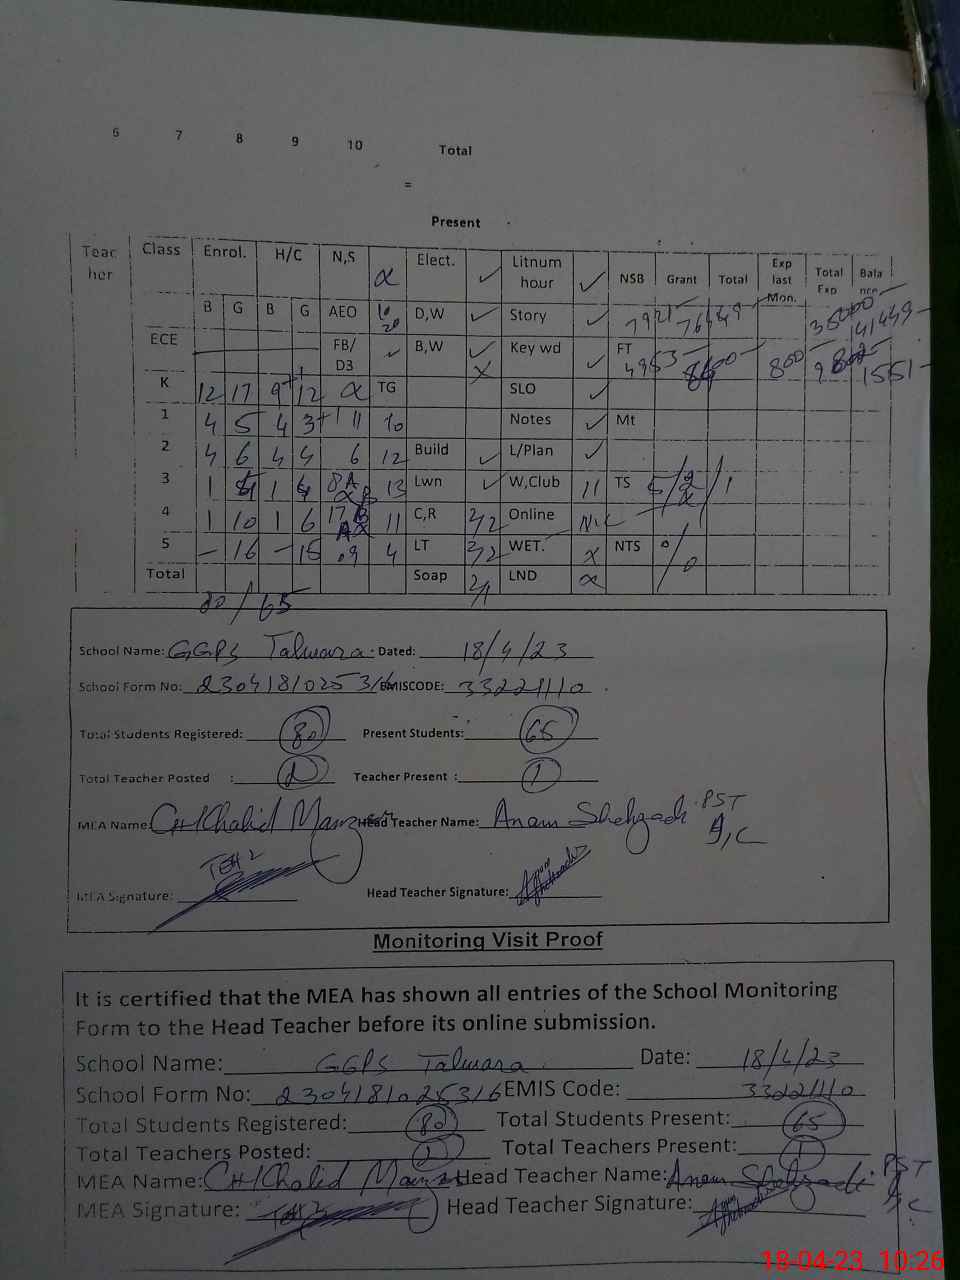 6 7 8 9 10 Total
=
Present
Teac her Class Enrol. H/C N,S α Elect. ✓ Litnum hour ✓ NSB Grant Total Exp last Mon. Total Exp Bala nce
B G B G AEO D,W ✓ Story ✓ 41449
ECE FB/ D3 ✓ B,W ✓ Key wd ✓ FT 4953 800 1551
K 12 17 9 12 α TG X SLO ✓
1 4 5 4 3 11 10 Notes ✓ Mt
2 4 6 4 4 6 12 Build ✓ L/Plan ✓
3 1 1 13 Lwn ✓ W,Club 11 TS
4 1 10 1 6 11 C,R Online NSB
5 – 16 – 15 4 LT WET. X NTS 0/0
Total Soap 2/1 LND α
80 / 65
School Name: GGPS Talwara Dated: 18/4/23
School Form No: 2304181025316 EMISCODE: 33221110
Total Students Registered: 80 Present Students: 65
Total Teacher Posted : 2 Teacher Present : 1
MEA Name: CH Khalid Manzoor Head Teacher Name: Anam Shehzadi PST I,C
MEA Signature: Head Teacher Signature: Anam Shehzadi
Monitoring Visit Proof
It is certified that the MEA has shown all entries of the School Monitoring
Form to the Head Teacher before its online submission.
School Name: GGPS Talwara Date: 18/4/23
School Form No: 2304181025316 EMIS Code: 33221110
Total Students Registered: 80 Total Students Present: 65
Total Teachers Posted: 2 Total Teachers Present: 1
MEA Name: CH Khalid Manzoor Head Teacher Name: Anam Shehzadi PST
MEA Signature: Head Teacher Signature: Anam Shehzadi I,C
18-04-23 10:26